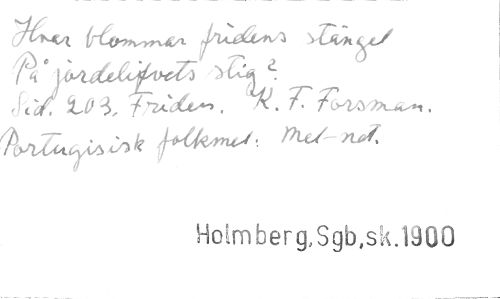 Hvar blommar fridens stängel
På jordelifvets stig?
Sid. 203. Friden. K. F. Forsman.
Portugisisk folkmel. Mel-not.
Holmberg,Sgb,sk.1900